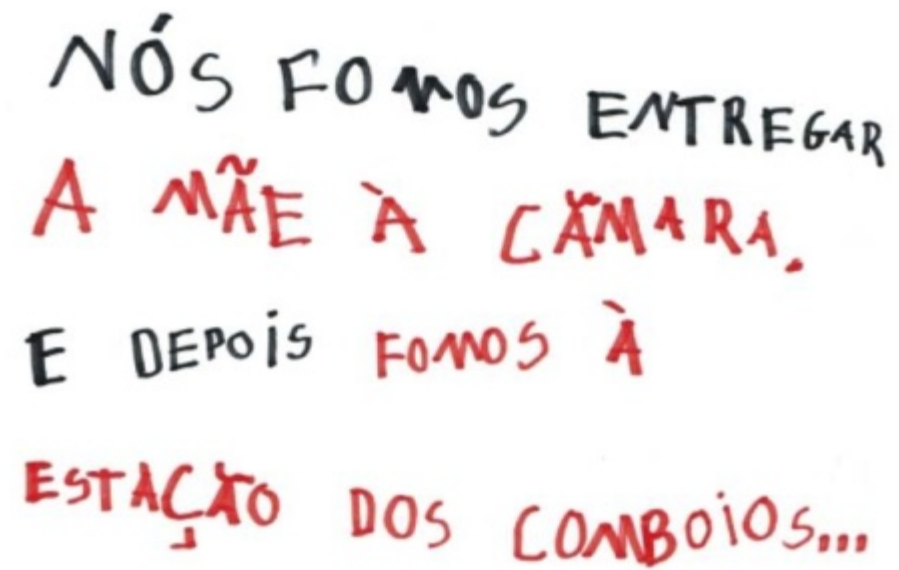 NÓS FOMOS ENTREGAR
A MÃE À CÂMARA.
E DEPOIS FOMOS À
ESTAÇÃO DOS COMBOIOS...